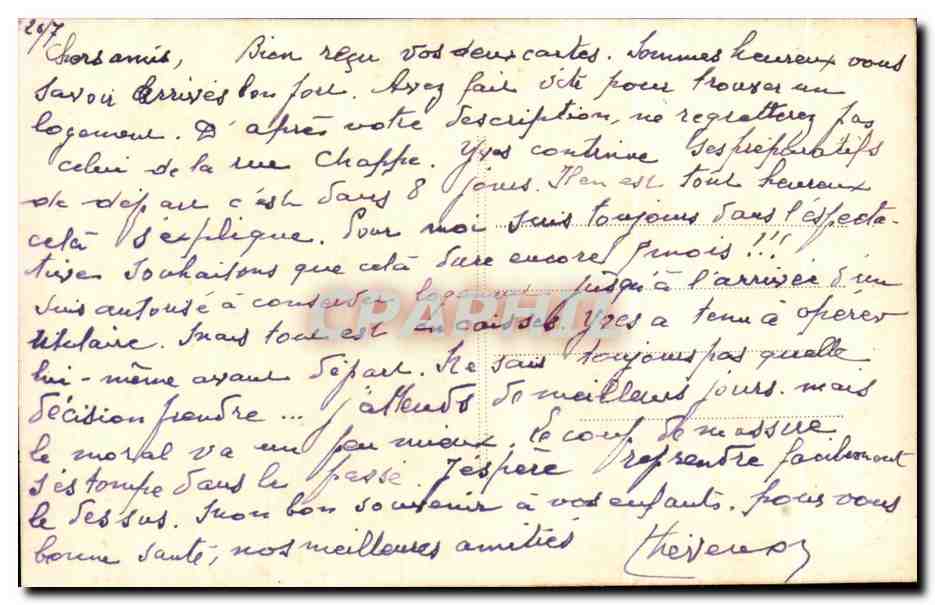 20/7
Chers amis, Bien reçu vos deux cartes. Sommes heureux vous
savoir arrivés bon port. Avez fait vite pour trouver un
logement. D'après votre description, ne regretterez pas
celui de la rue Chappe. Yves continue ses préparatifs
de départ c'est dans 8 jours. Il en est tout heureux
celà s'explique. Pour moi suis toujours dans l'éspecta-
tive. Souhaitons que celà dure encore mois !!!
suis autorisé à conserver logement jusqu'à l'arrivée d'un
titulaire. Mais tout est en caisses. Yves a tenu à opérer
lui-même avant départ. Ne sais toujours pas quelle
décision prendre ... j'attends de meilleurs jours. mais
le moral va un peu mieux. Le coup de massue
s'estompe dans le passé. J'espère reprendre facilement
le dessus. Mon bon souvenir à vos enfants. pour vous
bonne santé, nos meilleures amitiés
CPARAMA